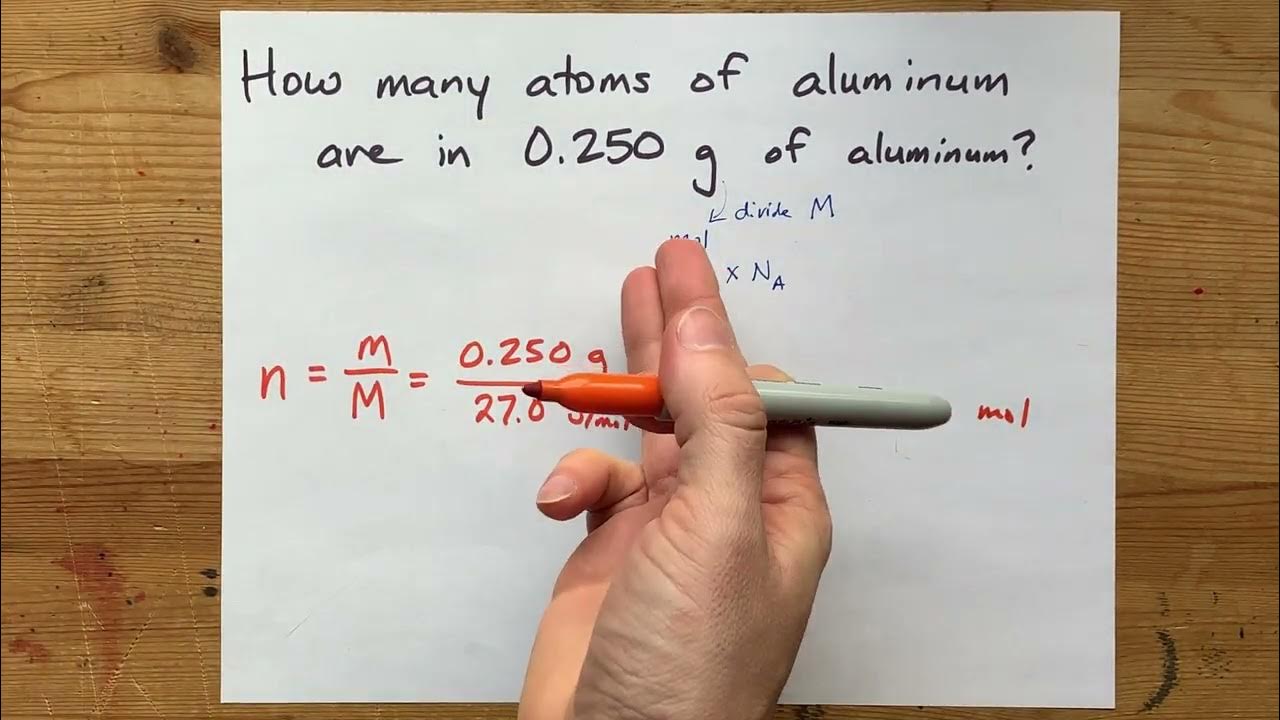 How many atoms of aluminum
are in 0.250 g of aluminum?
divide M
mol
x NA
n = m/M = 0.250 g / 27.0 g/mol
mol